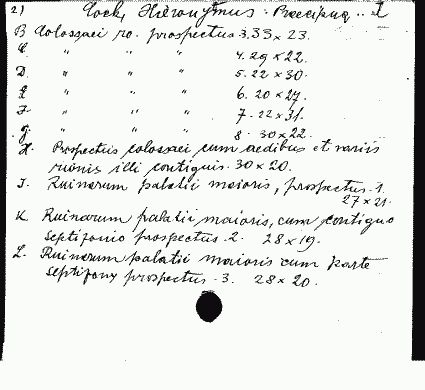 2) Cock, Hieronymus. Praecipua .. L
B Colossaei ro. prospectus 3.33 x 23.
C " " " 4. 29 x 22.
D " " " 5. 22 x 30.
E " " " 6. 20 x 27.
F " " " 7. 22 x 31.
G " " " 8. 30 x 22.
H Prospectus colossaei cum aedibus et variis
ruinis illi contiguis. 30 x 20.
I. Ruinarum palatii maioris, prospectus. 1.
27 x 21.
K. Ruinarum palatii maioris, cum contiguo
Septizonio prospectus. 2. 28 x 19.
L. Ruinarum palatii maioris cum parte
Septizony prospectus. 3. 28 x 20.